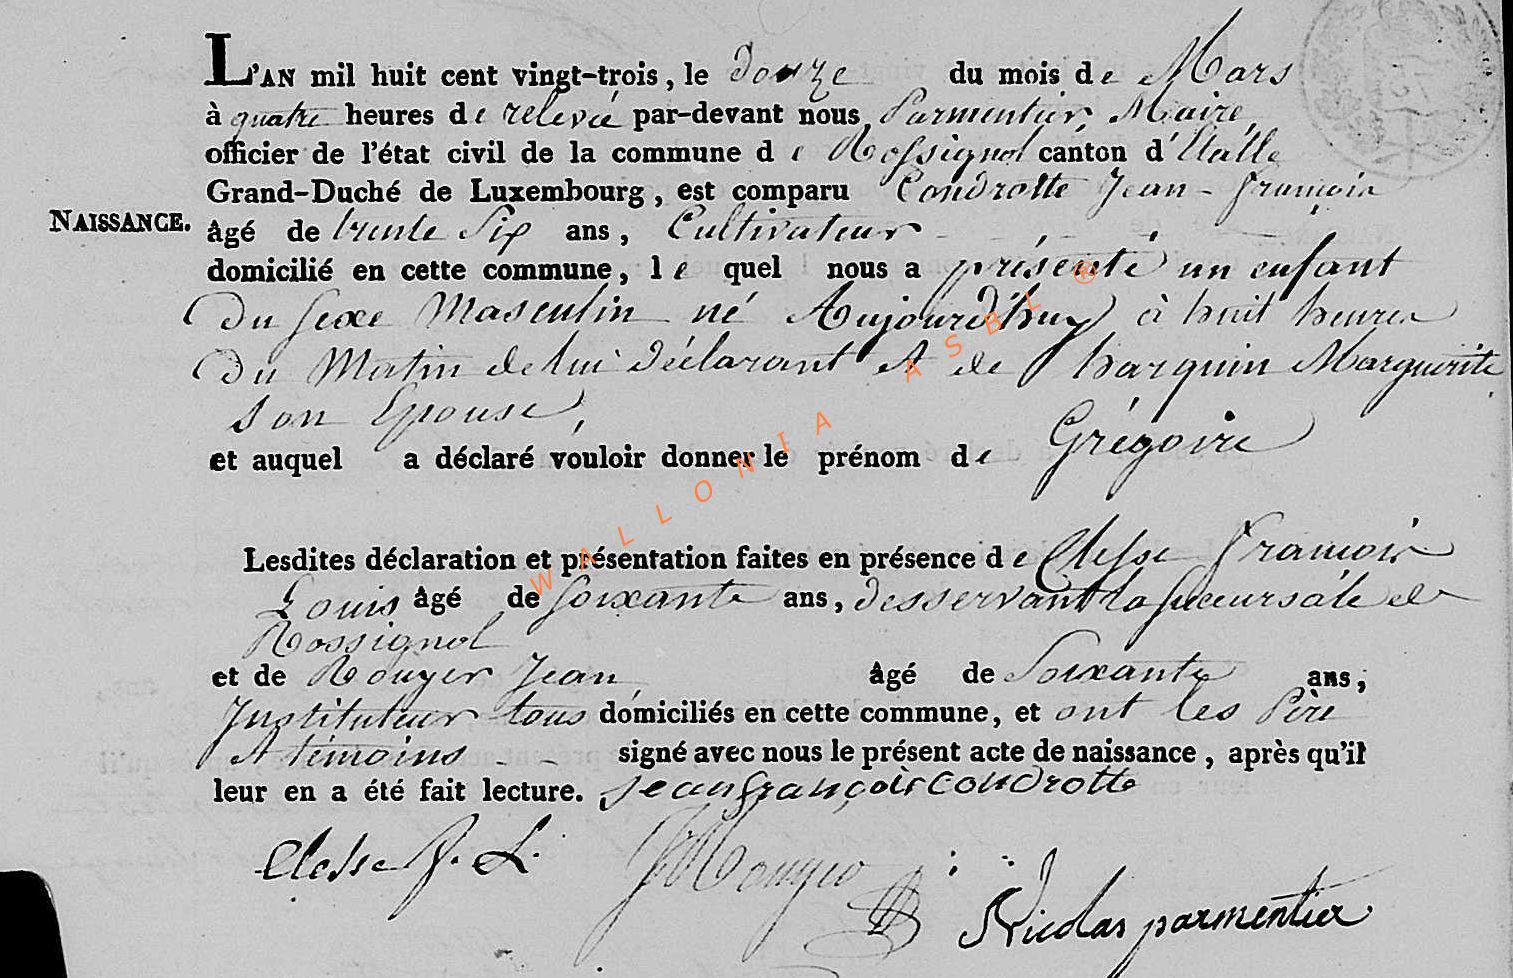 L'AN mil huit cent vingt-trois, le douze du mois de Mars
à quatre heures de relevée par-devant nous Parmentier, Maire,
officier de l'état civil de la commune de Rossignol canton d'Etalle
Grand-Duché de Luxembourg, est comparu Condrotte Jean-François
NAISSANCE.
âgé de trente Six ans, Cultivateur
domicilié en cette commune, le quel nous a présenté un enfant
du sexe Masculin né Aujourd'huy à huit heures
du Matin de lui déclarant et de harquin Marguerite
son Epouse,
et auquel a déclaré vouloir donner le prénom de Grégoire
Lesdites déclaration et présentation faites en présence de Clesse François
Louis âgé de soixante ans, desservant la succursale de
Rossignol
et de Rouyer Jean, âgé de Soixante ans,
Instituteur tous domiciliés en cette commune, et ont les Père
et témoins - - signé avec nous le présent acte de naissance, après qu'il
leur en a été fait lecture. jean françois condrotte
Clesse f. L.
Nicolas parmentier
WALLONIA ASBL ®